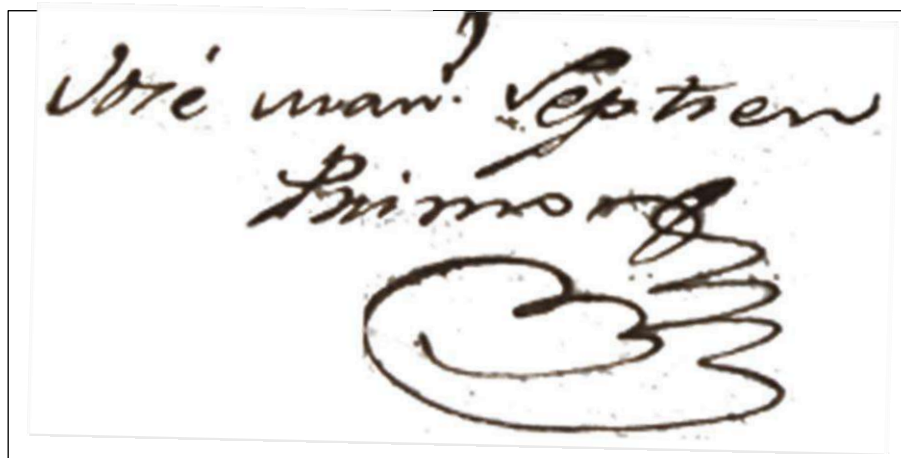 José man.l Septien
Primo